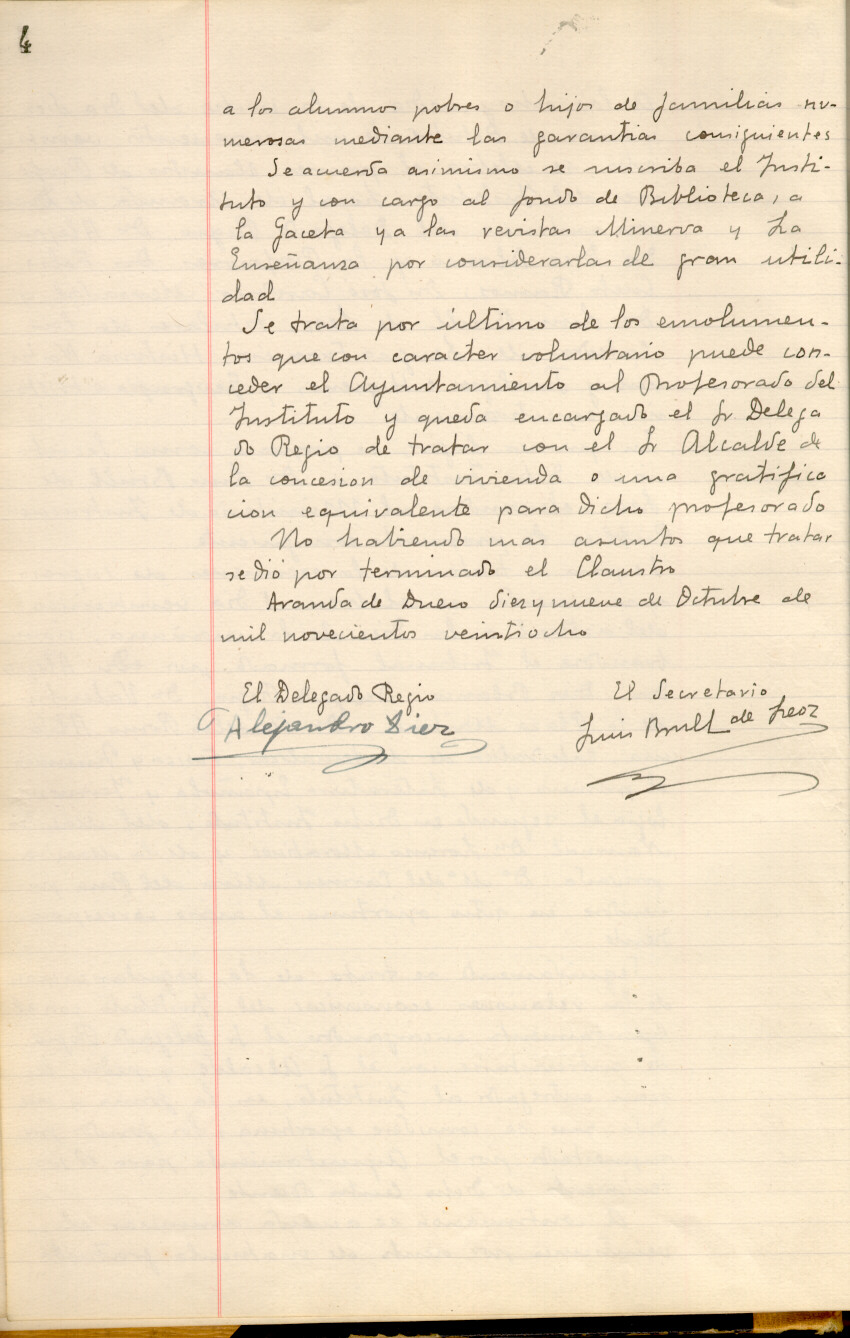 4
a los alumnos pobres o hijos de familias nu-
merosas mediante las garantias consiguientes
Se acuerda asimismo se suscriba el Insti-
tuto y con cargo al fondo de Biblioteca, a
la Gaceta y a las revistas Minerva y La
Enseñanza por considerarlas de gran utili-
dad
Se trata por último de los emolumen-
tos que con caracter voluntario puede con-
ceder el Ayuntamiento al Profesorado del
Instituto y queda encargado el Sr Delega
do Regio de tratar con el Sr Alcalde de
la concesion de vivienda o una gratifica
cion equivalente para dicho profesorado
No habiendo mas asuntos que tratar
se dió por terminado el Claustro
Aranda de Duero diez y nueve de Octubre de
mil novecientos veintiocho
El Delegado Regio
El Secretario
Alejandro Diez
Luis Brull de Leoz